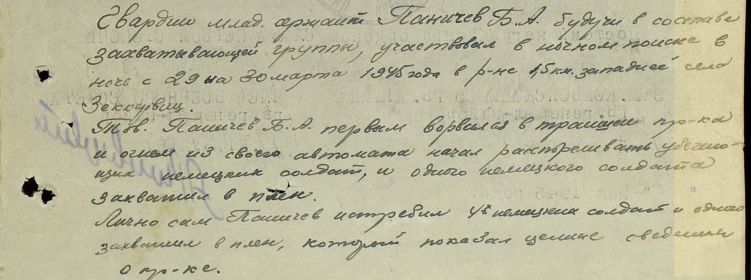 Гвардии млад. сержант Паничев Б.А. будучи в составе
захватывающей группы, участвовал в ночном поиске в
ночь с 29 на 30 марта 1945 года в р-не 1,5 км. западней села
Зеккервиц.
Тов. Паничев Б.А. первым ворвился в траншеи пр-ка
и огнем из своего автомата начал растреливать убегаю-
щих немецких солдат, и одного немецкого солдата
захватил в плен.
Лично сам Паничев истребил 4х немецких солдат и одного
захватил в плен, который показал ценные сведения
о пр-ке.